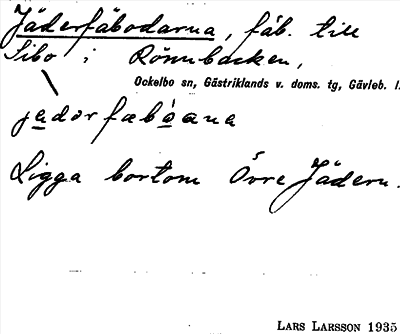 Jäderfäbodarna, fäb. till
Sibo i Rönnbacken,
Ockelbo sn, Gästriklands v. doms. tg, Gävleb. l.
Ligga bortom Övre Jädern.
LARS LARSSON 1935